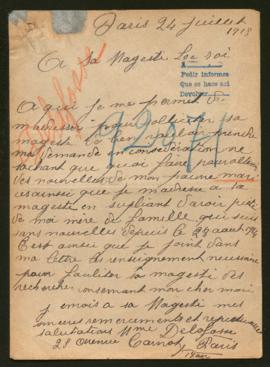 Paris 24 juillet
1918
A sa Magesté Le roi
Pedir informes
Que se hace así
Devolver
A qui je me permet de
m'adresser pour solliciter sa
magesté la
ma demande consideration ne
sachant que quoi faire pour
des nouvelles de mon pauvre mari
c'est ainsi que je m'adresse a sa
magesté en supliant d'avoir pitié
de moi mere de famille qui suis
sans nouvelles depuis le 29 aout 1914
C'est ainsi que je joint dans
ma lettre les enseignement necessaire
pour faciliter la magesté des
recherches concernant mon cher mari
j envois a sa Magesté mes
sinceres remerciements et
salutations Mme Delafosse
28 avenue Carnot Paris
17eme